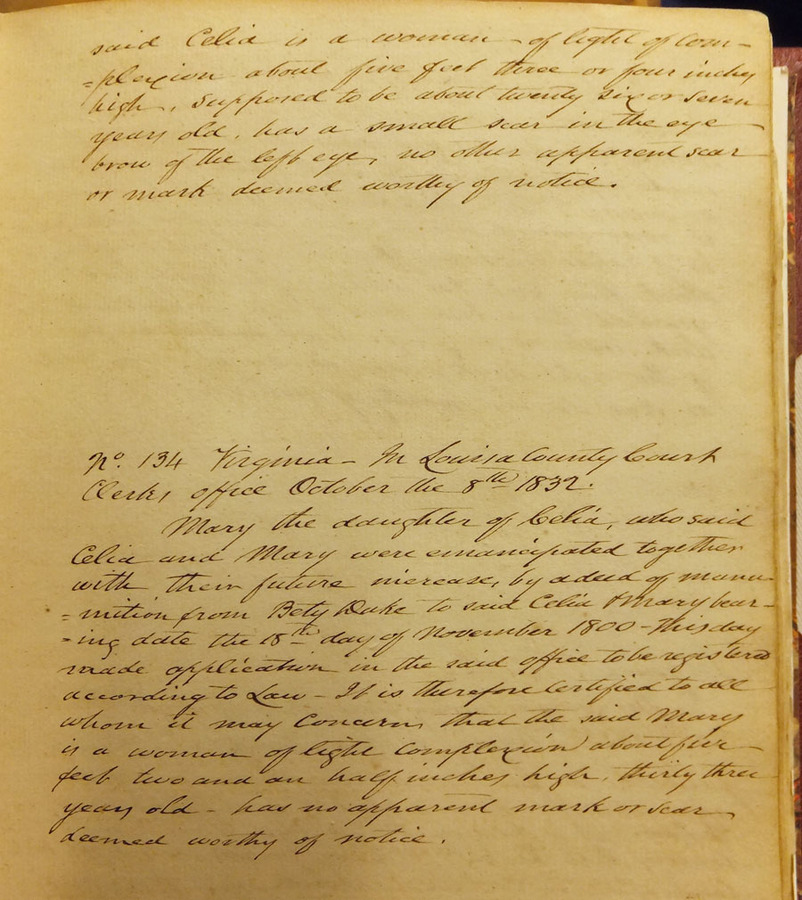 said Celia is a woman - of light of com-
=plexion about five feet three or four inches
high, supposed to be about twenty six or seven
years old, has a small scar in the eye
brow of the left eye, no other apparent scar
or mark deemed worthy of notice.
No. 134 Virginia - In Louisa County Court
Clerks office October the 8th 1832.
Mary the daughter of Celia, who said
Celia and Mary were emancipated together
with their future increase, by a deed of manu-
=mition from Bety Duke to said Celia & Mary bear-
=ing date the 18th day of November 1800 - This day
made application in the said office to be registered
according to Law - It is therefore Certified to all
whom it may Concern, that the said Mary
is a woman of light Complexion about five
feet two and an half inches high, thirty three
years old - has no apparent mark or scar
deemed worthy of notice.